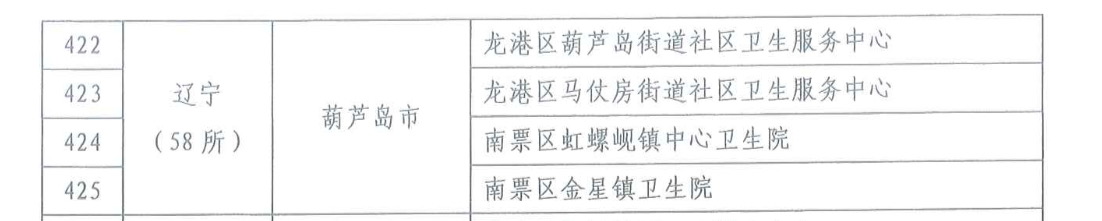 422
龙港区葫芦岛街道社区卫生服务中心
423
龙港区马仗房街道社区卫生服务中心
辽宁
(58所)
葫芦岛市
424
南票区虹螺岘镇中心卫生院
425
南票区金星镇卫生院